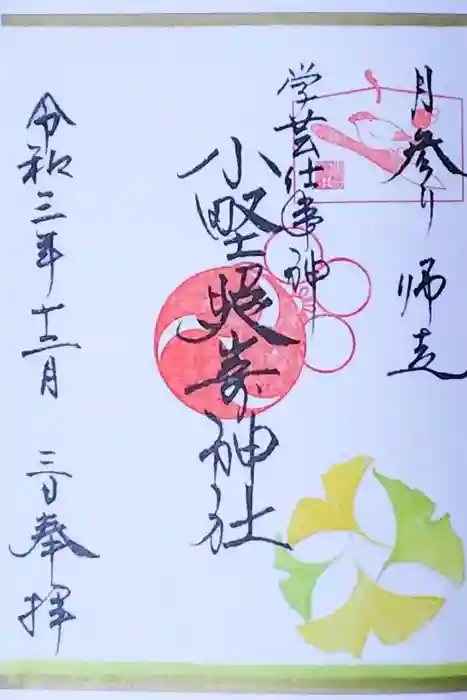 月参り 師走
学芸仕事神
小野照崎神社
令和三年 十二月 三日 奉拝